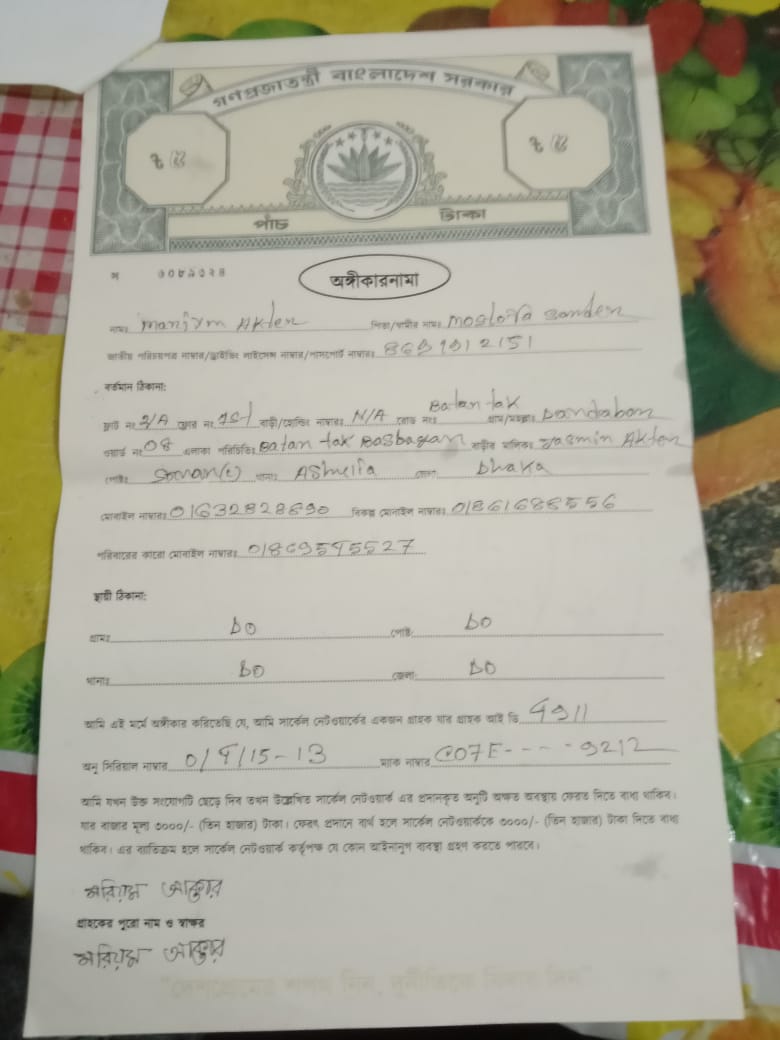 গণপ্রজাতন্ত্রী বাংলাদেশ সরকার
৳ ৫ ৳ ৫
পাঁচ টাকা
অঙ্গীকারনামা
নামঃ Mariym Akter পিতা/স্বামীর নামঃ Mostofa
জাতীয় পরিচয়পত্র নাম্বার/ড্রাইভিং লাইসেন্স নাম্বার/পাসপোর্ট নাম্বারঃ
বর্তমান ঠিকানা:
ফ্লাট নং 3/A ফ্লোর নং 1st বাড়ী/হোল্ডিং নাম্বারঃ N/A রোড নংঃ Batan tak গ্রাম/মহল্লাঃ
ওয়ার্ড নং 08 এলাকা পরিচিতিঃ Batan tak Basbagan বাড়ীর মালিকঃ Jasmin Akter
পোষ্টঃ থানাঃ Ashulia জেলাঃ Dhaka
মোবাইল নাম্বারঃ 01632828690 বিকল্প মোবাইল নাম্বারঃ
পরিবারের কারো মোবাইল নাম্বারঃ
স্থায়ী ঠিকানা:
গ্রামঃ DO পোষ্ট: DO
থানাঃ DO জেলা: DO
আমি এই মর্মে অঙ্গীকার করিতেছি যে, আমি সার্কেল নেটওয়ার্কের একজন গ্রাহক যার গ্রাহক আই ডি
অনু সিরিয়াল নাম্বার 0/4/15-13 ম্যাক নাম্বার C07E - - - - 9212
আমি যখন উক্ত সংযোগটি ছেড়ে দিব তখন উল্লেখিত সার্কেল নেটওয়ার্ক এর প্রদানকৃত অনুটি অক্ষত অবস্থায় ফেরত দিতে বাধ্য থাকিব।
যার বাজার মূল্য ৩০০০/- (তিন হাজার) টাকা। ফেরৎ প্রদানে ব্যর্থ হলে সার্কেল নেটওয়ার্ককে ৩০০০/- (তিন হাজার) টাকা দিতে বাধ্য
থাকিব। এর ব্যতিক্রম হলে সার্কেল নেটওয়ার্ক কর্তৃপক্ষ যে কোন আইনানুগ ব্যবস্থা গ্রহণ করতে পারবে।
মরিয়ম আক্তার
গ্রাহকের পুরো নাম ও স্বাক্ষর
মরিয়ম আক্তার
"দেশপ্রেমের শপথ নিন, দুর্নীতিকে বিদায় দিন"